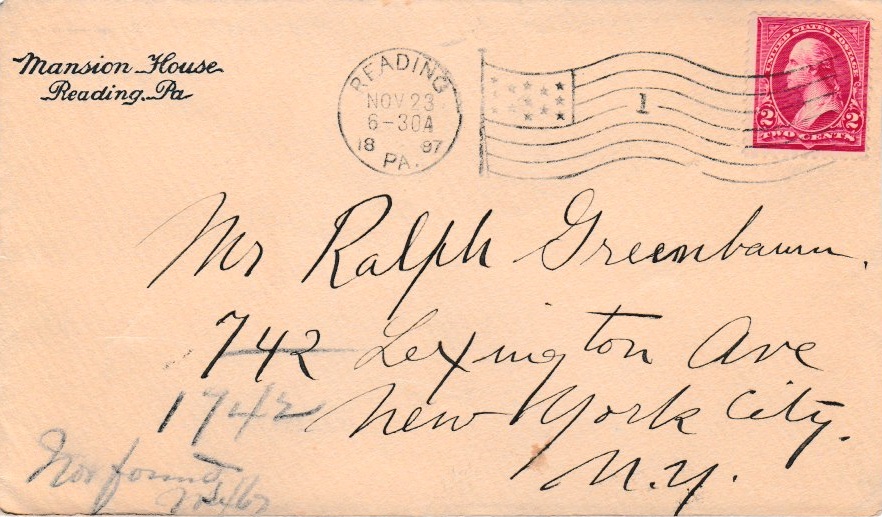 Mansion House
Reading, Pa
READING
NOV 23
6-30A
18 97
PA.
1
UNITED STATES POSTAGE
2 2
TWO CENTS
Mr Ralph Greenbaum.
742 Lexington Ave
1742
New York City.
N.Y.
Not found